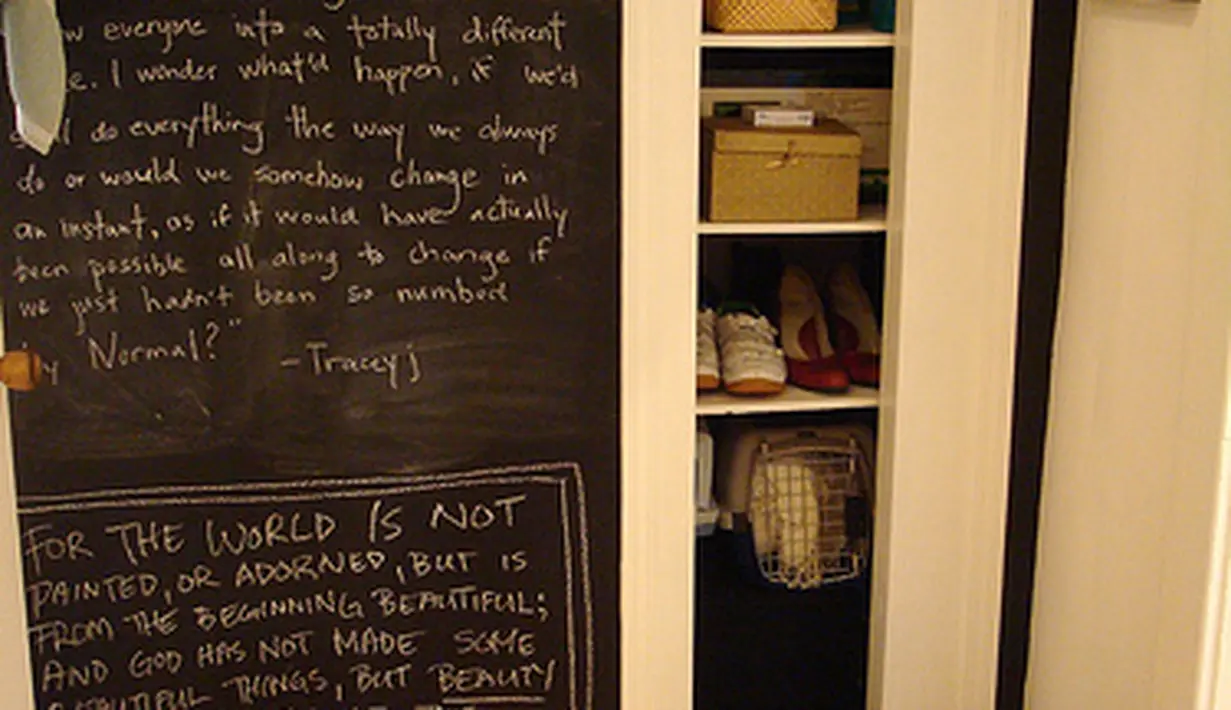 everyone into a totally different
e. I wonder what'd happen, if we'd
do everything the way we always
do or would we somehow change in
an instant, as if it would have actually
been possible all along to change if
we just hadn't been so numbed
by Normal?" -Tracey j
FOR THE WORLD IS NOT
PAINTED, OR ADORNED, BUT IS
FROM THE BEGINNING BEAUTIFUL;
AND GOD HAS NOT MADE SOME
BEAUTIFUL THINGS, BUT BEAUTY